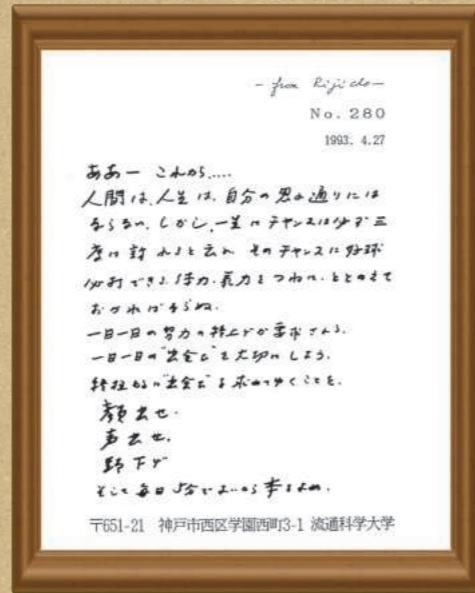 - from Rijicho -
No. 280
1993. 4.27
ああー これから.....
人間は、人生は、自分の思い通りには
ならない。しかし、一生にチャンスは必ず三
度は訪れると云れ そのチャンスに好球
必打できる、体力、気力をつねに、ととのえて
おかねばならぬ。
一日一日の努力の積上げが要求される。
一日一日の"出会い"を大切にしよう。
"出会い"を求めてゆくことを。
顔出せ.
声出せ.
頭下ゲ
そして毎日5分でよいから本をよめ.
〒651-21 神戸市西区学園西町3-1 流通科学大学